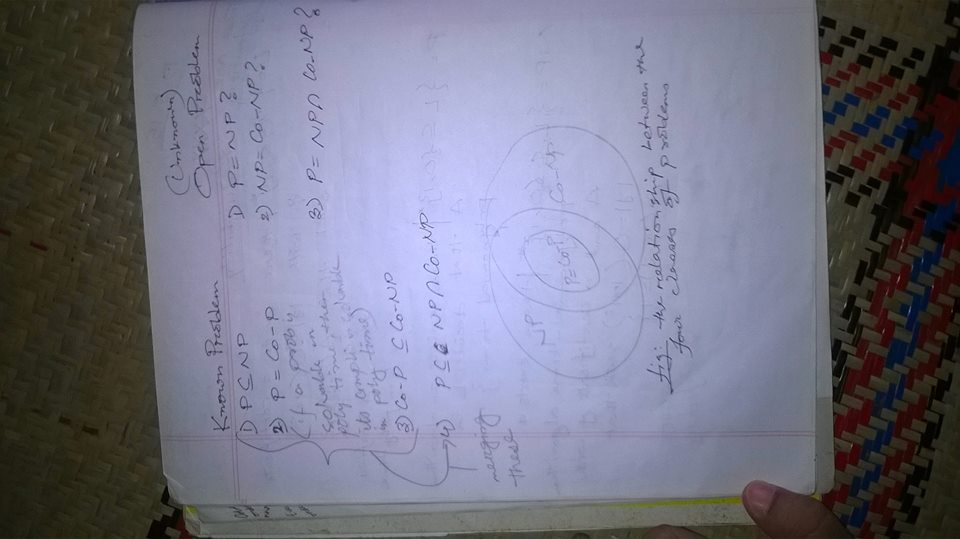 Known Problem
1) P ⊆ NP
2) P = Co-P
(if a prob
solvable in
poly time then
its complement solvable
in poly time)
3) Co-P ⊆ Co-NP
4) P ⊆ NP ∩ Co-NP
merging
these
(Unknown)
Open Problem
1) P = NP?
2) NP = Co-NP?
3) P = NP ∩ Co-NP?
NP
P=Co-P
Co-NP
fig: the relationship between the
four classes of problems